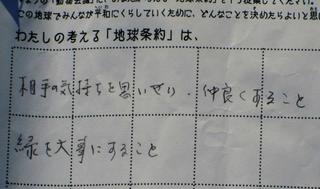 この地球でみんなが平和にくらしていくために、どんなことを決めたらよいと思い
わたしの考える「地球条約」は、
相手の気持ちを思いやり、仲良くすること
緑を大事にすること